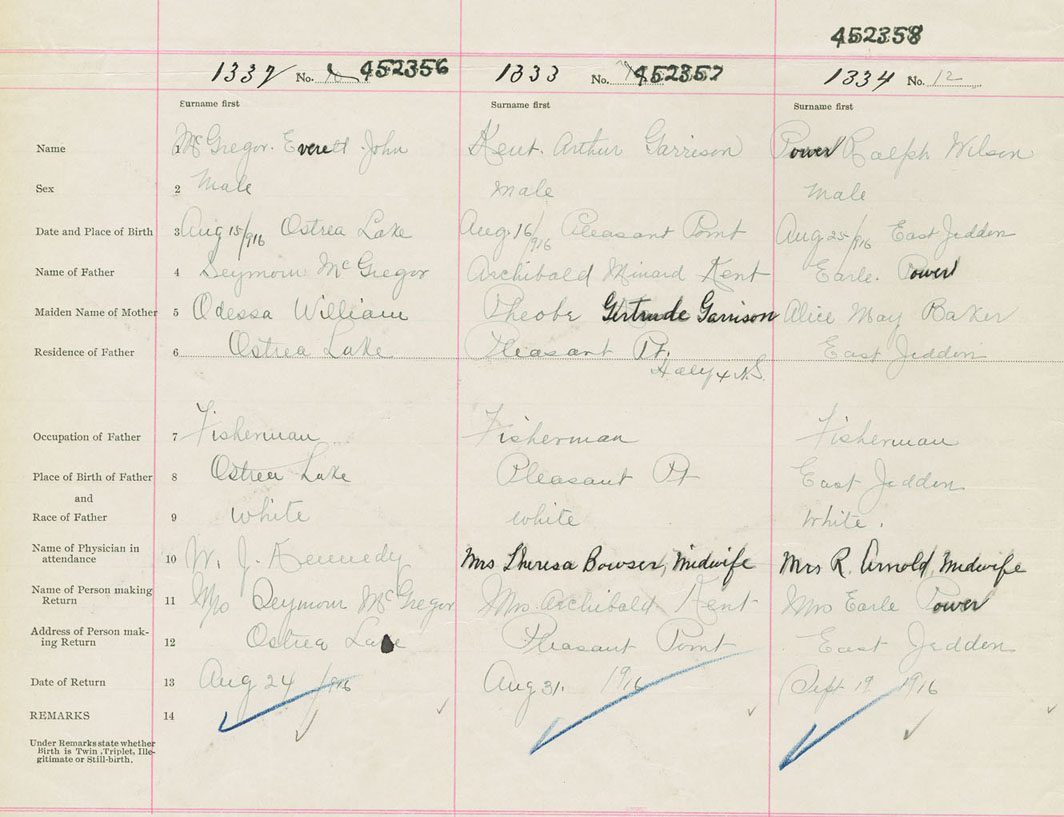 452358
1337 No. 452356 1333 No. 452357 1334 No. 12
Surname first Surname first Surname first
Name 1 McGregor. Everett John Kent. Arthur Garrison Power Ralph Wilson
Sex 2 Male Male Male
Date and Place of Birth 3 Aug 15/916 Ostrea Lake Aug. 16/916 Pleasant Point Aug 25/916 East Jeddon
Name of Father 4 Seymour McGregor Archibald Minard Kent Earle. Power
Maiden Name of Mother 5 Odessa William Gertrude Garrison Alice May Baker
Residence of Father 6 Ostrea Lake Pleasant Pt. East Jeddon
N.S.
Occupation of Father 7 Fisherman Fisherman Fisherman
Place of Birth of Father 8 Ostrea Lake Pleasant Pt East Jeddon
and
Race of Father 9 White White White.
Name of Physician in
attendance 10 W. J. Kennedy Mrs Theresa Bowser, Midwife Mrs R. Arnold, Midwife
Name of Person making
Return 11 Mrs Seymour McGregor Mrs Archibald Kent Mrs Earle Power
Address of Person mak-
ing Return 12 Ostrea Lake Pleasant Point East Jeddon
Date of Return 13 Aug 24 1916 Aug 31. 1916 Sept 19 1916
REMARKS 14
Under Remarks state whether
Birth is Twin, Triplet, Ille-
gitimate or Still-birth.